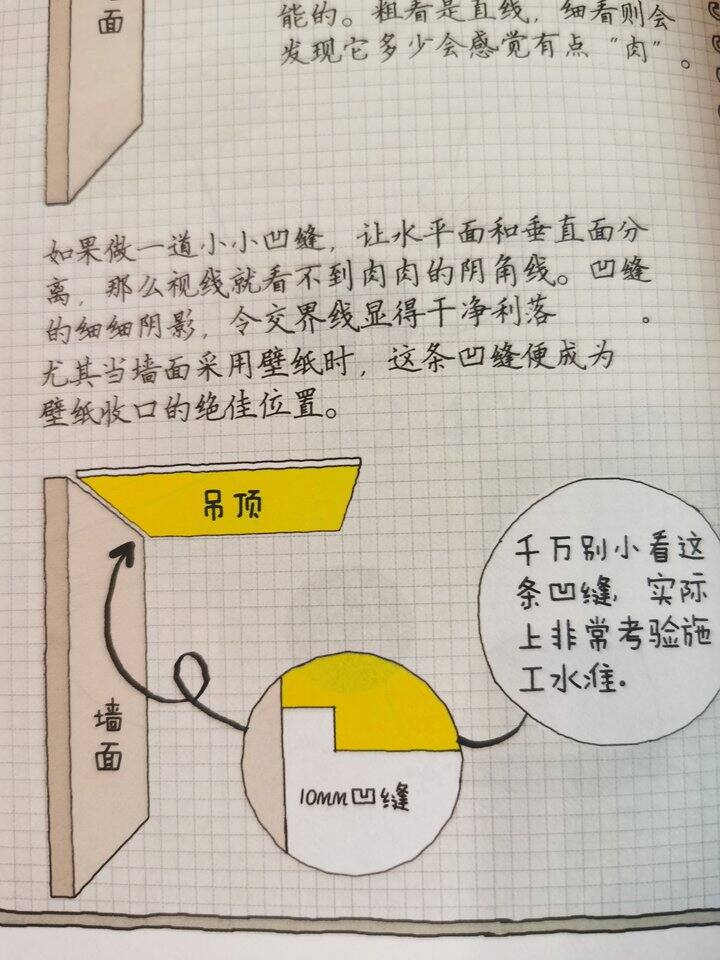 面
能的。粗看是直线，细看则会
发现它多少会感觉有点“肉”。
如果做一道小小凹缝，让水平面和垂直面分
离，那么视线就看不到肉肉的阴角线。凹缝
的细细阴影，令交界线显得干净利落　　。
尤其当墙面采用壁纸时，这条凹缝便成为
壁纸收口的绝佳位置。
吊顶
千万别小看这
条凹缝，实际
上非常考验施
工水准．
墙
面
10mm凹缝